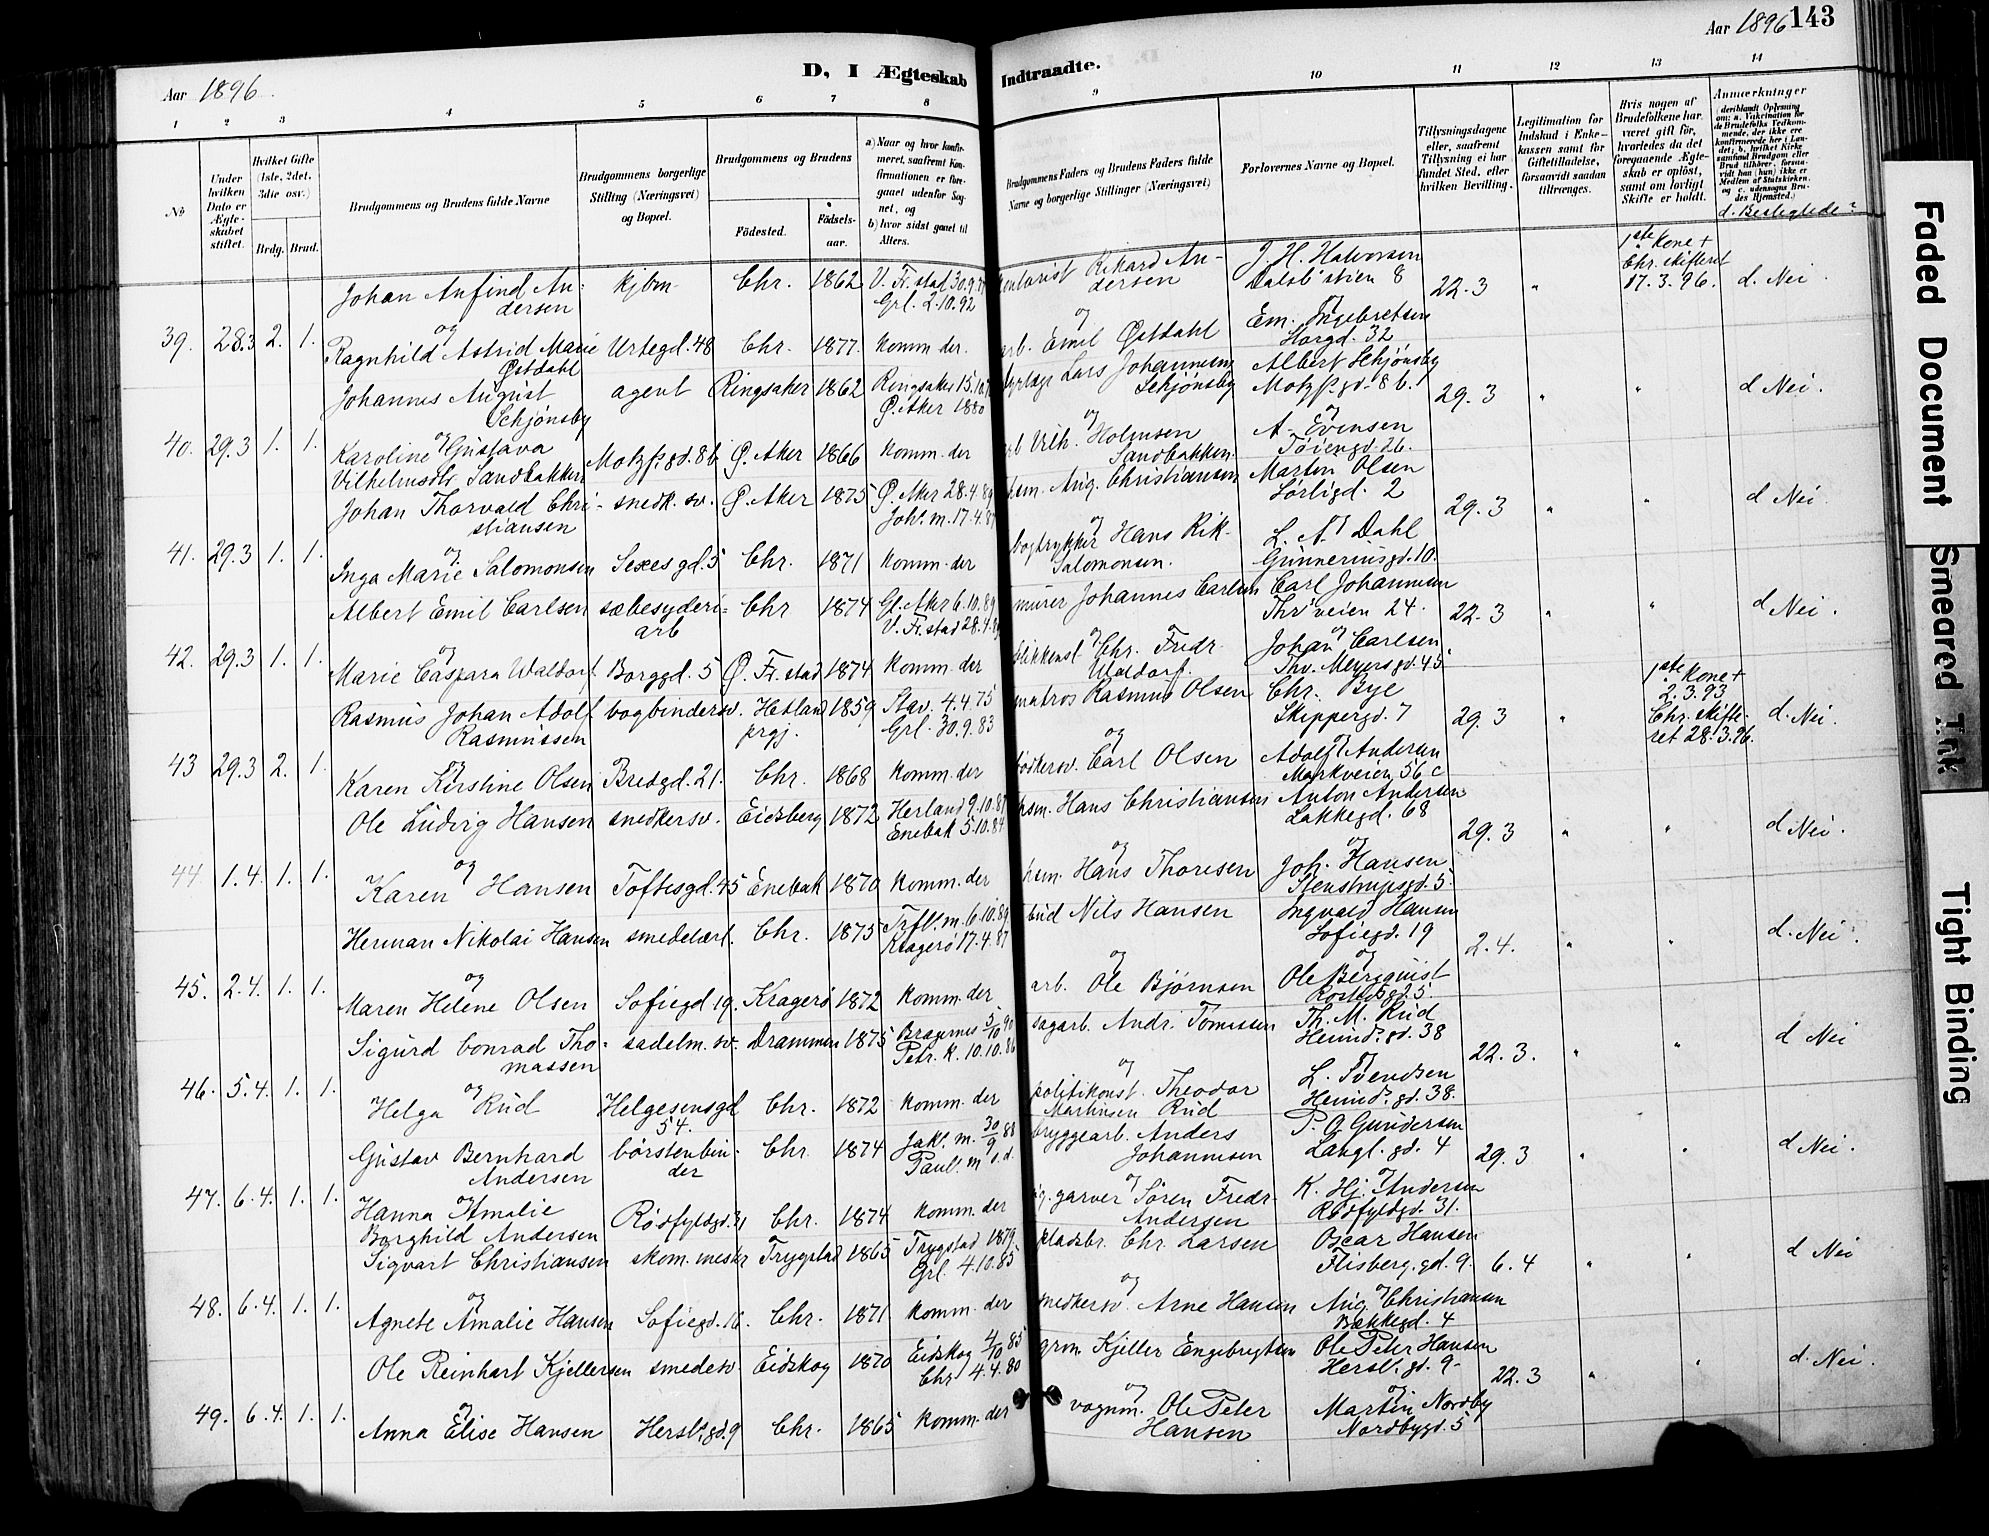 Aar 1896.
D, I Ægteskab Indtraadte.
Aar 1896 143
1 2 3 4 5 6 7 8 9 10 11 12 13 14
No
Under hvilken Dato er Ægteskabet stiftet.
Hvilket Gifte (1ste, 2det, 3die osv.)
Brdg. Brud.
Brudgommens og Brudens fulde Navne
Brudgommens borgerlige Stilling (Næringsvei) og Bopæl.
Brudgommens og Brudens
Födested.
Födselsaar.
a) Naar og hvor konfirmeret, saafremt Konfirmationen er foregaaet udenfor Sognet, og
b) hvor sidst gaaet til Alters.
Brudgommens Faders og Brudens Faders fulde Navne og borgerlige Stillinger (Næringsvei)
Forlovernes Navne og Bopæl.
Tillysningsdagene eller, saafremt Tillysning ei har fundet Sted, efter hvilken Bevilling.
Legitimation for Indskud i Enkekassen samt for Giftetilladelse, forsaavidt saadan tiltrænges.
Hvis nogen af Brudefolkene har været gift før, hvorledes da det foregaaende Ægteskab er opløst, samt om lovligt Skifte er holdt.
Anmærkninger (deriblandt Oplysning om: a. Vakcination for de Brudefolks Vedkommende, der ikke ere konfirmerede her i Landet; b. hvilket Kirkesamfund Brudgom eller Brud tilhører, forsaavidt han (hun) ikke er Medlem af Statskirken, og c. udensogns Brudes Hjemsted.)
d. Beslegtede?
39. 28.3 2. 1.
Johan Anfind Andersen kjbm Chr. 1862 V. Fr.stad 30.9. Grl. 2.10.92 Rikard Andersen J. H. Halvorsen Dalsb'stien 8 22.3 " 1ste Kone + Chr. skifteret 17.3.96. d. Nei.
og
Ragnhild Astrid Marie Østdahl Urtegd. 48 Chr. 1877. Komm. der. arb. Emil Østdahl Em. Ingebretsen Torgd. 32
40. 29.3 1. 1.
Johannes August Schjønsby agent Ringsaker 1862 Ringsaker 15.10. Ø. Aker 1880 Lars Johannesen Schjønsby Albert Schjønsby Motzf. gd. 8 b. 29.3 " " d Nei.
og
Karoline Gustava Vilhelmsdtr Sandbakken Motzf. gd. 8b Ø. Aker 1866 Komm. der arb Vilh. Holmsen Sandbakken. A. Evensen Tøiengd. 26.
41. 29.3 1. 1.
Johan Thorvald Christiansen snedk. sv. Ø. Aker 1875 Ø. Aker 28.4.89 Joh'. m. 17.4.87 hsm. Aug. Christiansen Martin Olsen Sørligd. 2 29.3 " " d Nei.
og
Inga Marie Salomonsen Sexesgd. 5 Chr. 1871 Komm. der bogtrykker Hans Rik. Salomonsen. L. A. Dahl Gunneriusgd. 10.
42. 29.3 1. 1.
Albert Emil Carlsen sæbesyderiarb Chr 1874 Gl. Aker 6.10.89 V. Fr.stad 28.4. murer Johannes Carlsen Carl Johannesen Thr'veien 24. 22.3 " " d Nei.
og
Marie Caspara Waldorf. Borggd. 5 Ø. Fr.stad 1874 Komm. der blikkensl Chr. Fredr. Waldorf. Johan Carlsen Thv. Meyersgd. 45
43 29.3 2. 1.
Rasmus Johan Adolf Rasmussen bogbindersv. Hetland prgj. 1859 Stav. 4.4.75 Grl. 30.9.83 matros Rasmus Olsen Chr. Bye Skippergd. 7 29.3 " 1ste Kone + 2.3.93 Chr. skifteret 28.3.96. d. Nei.
og
Karen Kirstine Olsen Bredgd. 21. Chr. 1868 Komm. der bødkersv. Carl Olsen Adolf Andersen Markveien 56 c
44 1.4. 1. 1.
Ole Ludvig Hansen snedkersv. Eidsberg 1872 Herland 9.10.87 Enebak 5.10.84 hsm. Hans Christiansen Anton Andersen Lakkegd. 68 29.3 " " d Nei.
og
Karen Hansen Toftesgd. 45 Enebak 1870 Komm. der hsm. Hans Thoresen Joh. Hansen Stenstrupsgd. 5.
45. 2.4. 1. 1.
Herman Nikolai Hansen smedelærl. Chr. 1875 Trfl'. m. 6.10.89 Kragerø 17.4.87 bud Nils Hansen Ingvald Hansen Sofiegd. 19 2.4. " " d. Nei.
og
Maren Helene Olsen Sofiegd 19. Kragerø 1872 Komm. der arb. Ole Bjørnsen Ole Bergquist
46. 5.4. 1. 1.
Sigurd Conrad Thomassen sadelm. sv. Drammen 1875 Bragernes 5/10 90 Petr. K. 10.10.86 sagarb. Andr. Tomessen Th. M. Rud Heimd. gd. 38 22.3. " " d Nei
og
Helga Rud Helgesensgd 54. Chr. 1872 Komm. der politikonst. Theodor Martinsen Rud L. Svendsen Heimd. gd. 38.
47. 6.4. 1. 1.
Gustav Bernhard Andersen børstenbinder Chr. 1874 Jak'. m. 30/9 88 Paul'. m s.d. bryggearb. Anders Johannesen P. O. Gundersen Langl. gd. 4 29.3 " " d Nei.
og
Hanna Amalie Borghild Andersen Rødfyldgd. 31 Chr. 1874 Komm. der garver Søren Fredr. Andersen K. Hj. Andersen Rødfyldgd. 31.
48. 6.4. 1. 1.
Sigvart Christiansen skom. mester Trygstad 1865 Trygstad 1879. Grl. 4.10.85 pladsbr. Chr. Larsen Oscar Hansen Flisberg. gd. 9. 6.4 " " d Nei
og
Agnete Amalie Hansen Sofiegd. 16. Chr. 1871. Komm. der snedkersv. Arne Hansen Aug. Christiansen Bakkegd. 4
49. 6.4. 1. 1.
Ole Reinhart Kjellersen smedesv Eidskog 1870 Eidskog 4/10 85 Chr 4.4.80 grm. Kjeller Engebrigtsen Ole Peter Hansen Hersl'. gd. 9. 22.3 " " d. Nei.
og
Anna Elise Hansen Hersl'. gd. 9 Chr. 1865 Komm. der vognm. Ole Peter Hansen Martin Nordby Nordbygd. 5
Faded Document
Smeared Ink
Tight Binding